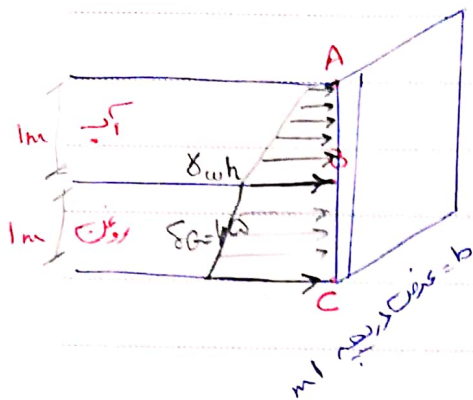 A
1m آب
B
γwh
1m روغن SG=
C
b = عرض دریچه
1m